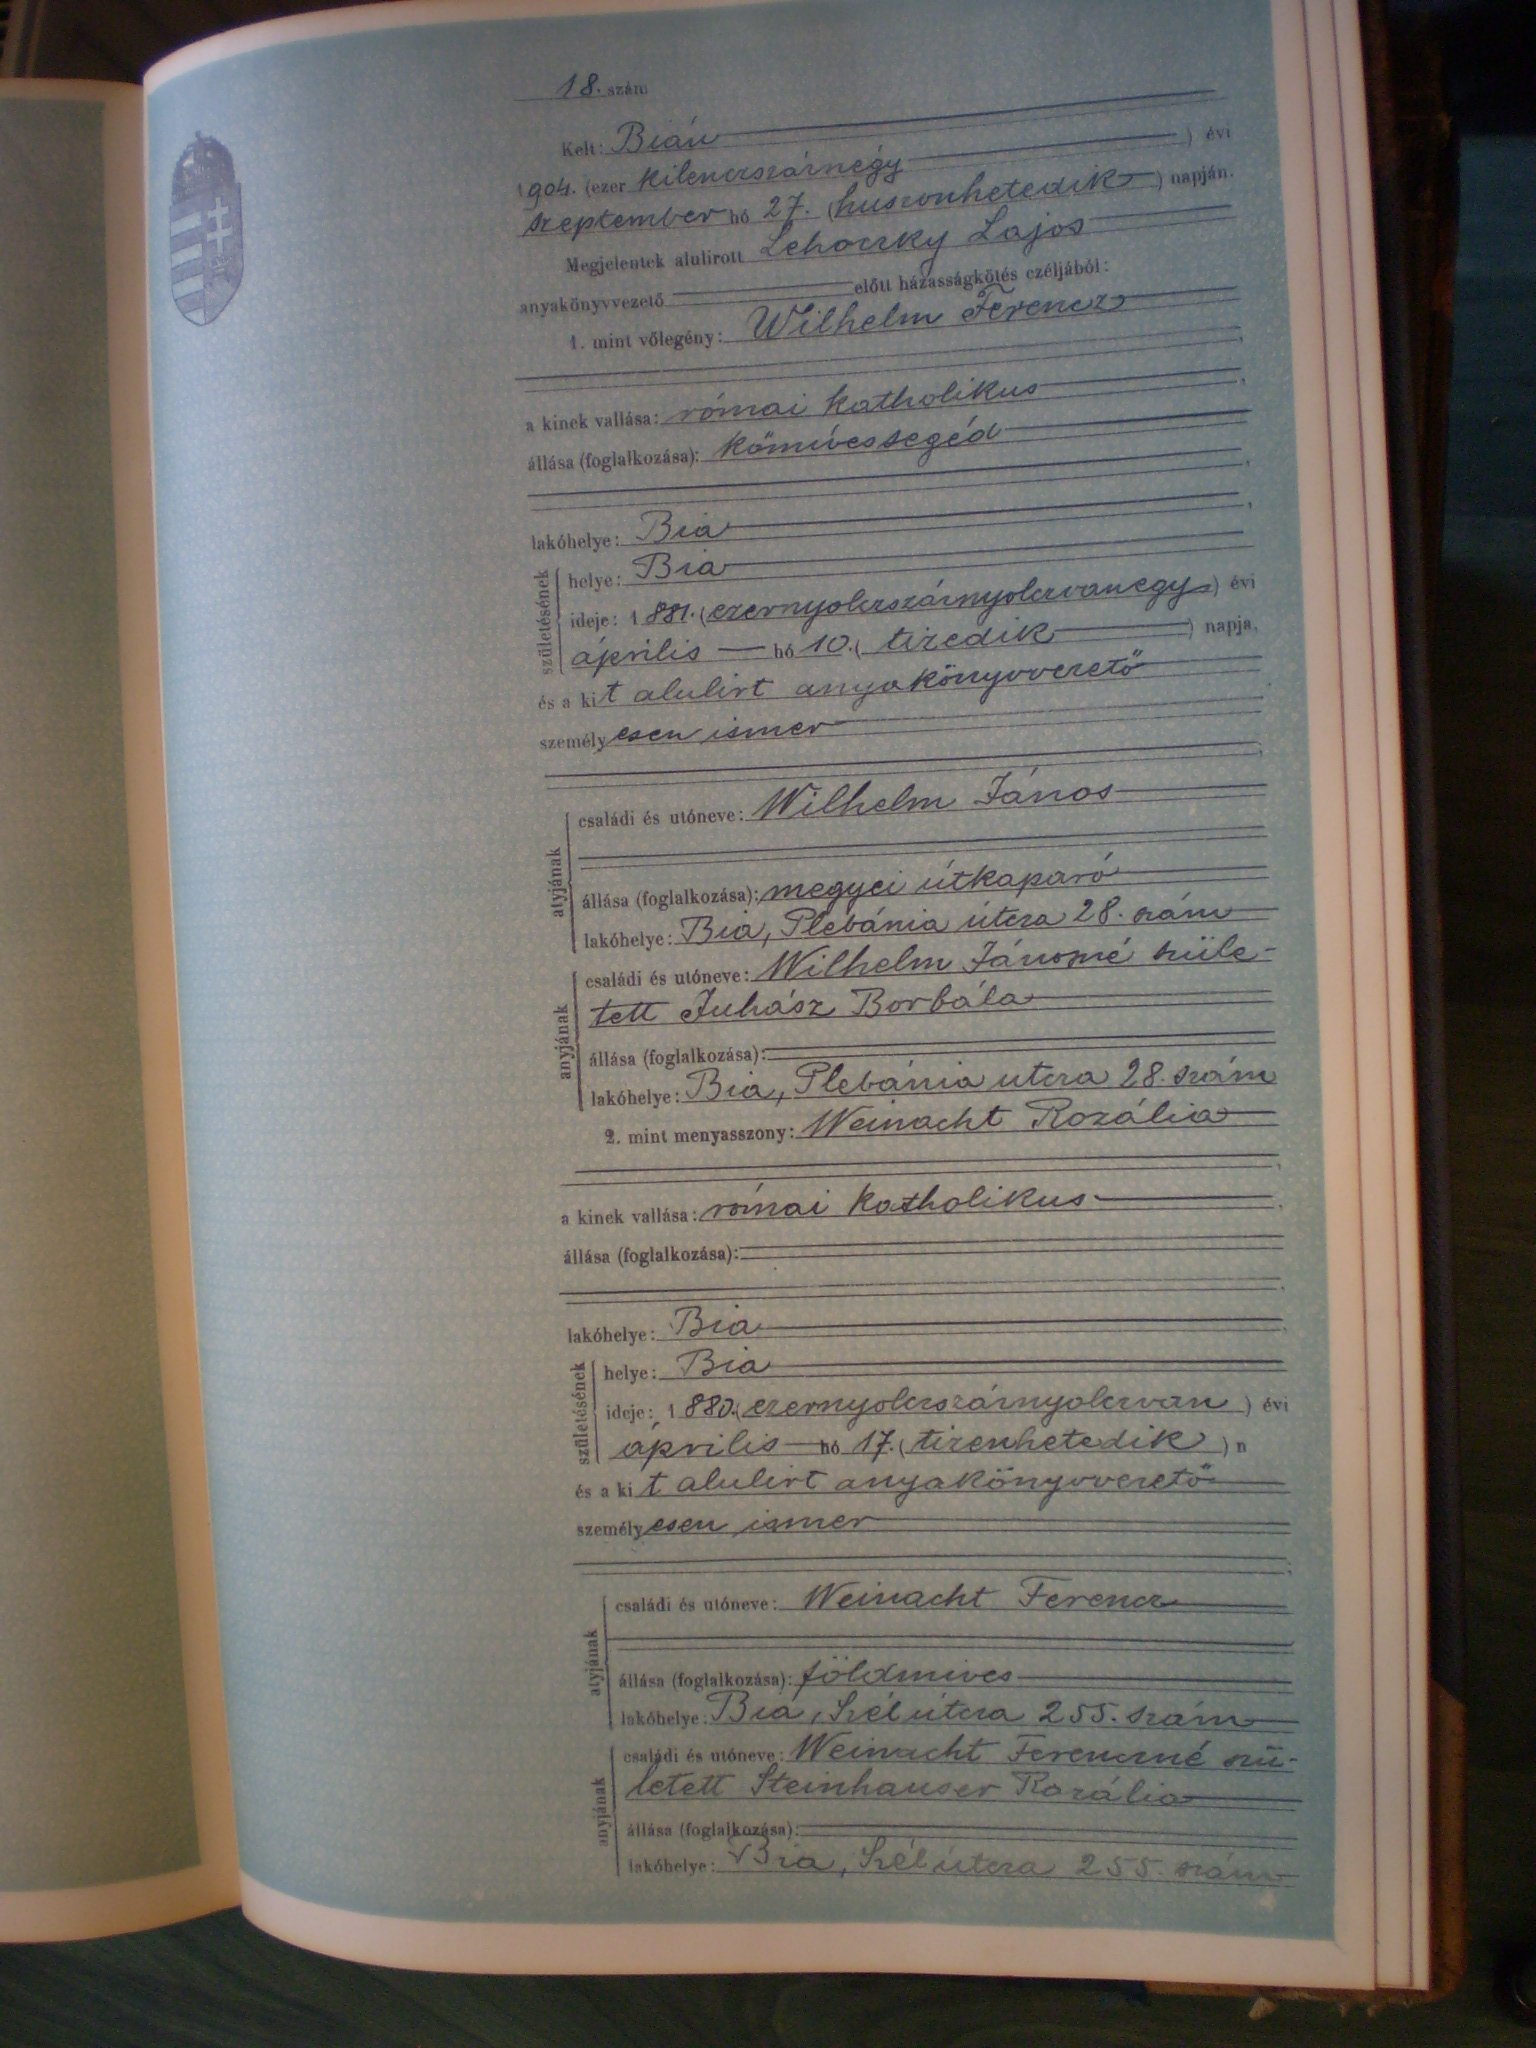 18. szám
Kelt: Bián
1904. (ezer kilenczszáznégy) évi
szeptember hó 27. (huszonhetedik) napján.
Megjelentek alulírott Lehoczky Lajos
anyakönyvvezető előtt házasságkötés czéljából:
1. mint vőlegény: Wilhelm Ferencz
a kinek vallása: római katholikus
állása (foglalkozása): kőmívessegéd
lakóhelye: Bia
születésének
helye: Bia
ideje: 1881. (ezernyolczszáznyolczvanegy) évi
április hó 10. (tizedik) napja,
és a kit alulirt anyakönyvvezető
személyesen ismer
atyjának
családi és utóneve: Wilhelm János
állása (foglalkozása): megyei útkaparó
lakóhelye: Bia, Plebánia útcza 28. szám
anyjának
családi és utóneve: Wilhelm Jánosné szüle-
tett Juhász Borbála
állása (foglalkozása):
lakóhelye: Bia, Plebánia utcza 28. szám
2. mint menyasszony: Weinacht Rozália
a kinek vallása: római katholikus
állása (foglalkozása):
lakóhelye: Bia
születésének
helye: Bia
ideje: 1880. (ezernyolczszáznyolczvan) évi
április hó 17. (tizenhetedik) n
és a kit alulirt anyakönyvvezető
személyesen ismer
atyjának
családi és utóneve: Weinacht Ferencz
állása (foglalkozása): földmives
lakóhelye: Bia, Szél útcza 255. szám
anyjának
családi és utóneve: Weinacht Ferenczné szü-
letett Steinhauser Rozália
állása (foglalkozása):
lakóhelye: Bia, Szél útcza 255. szám